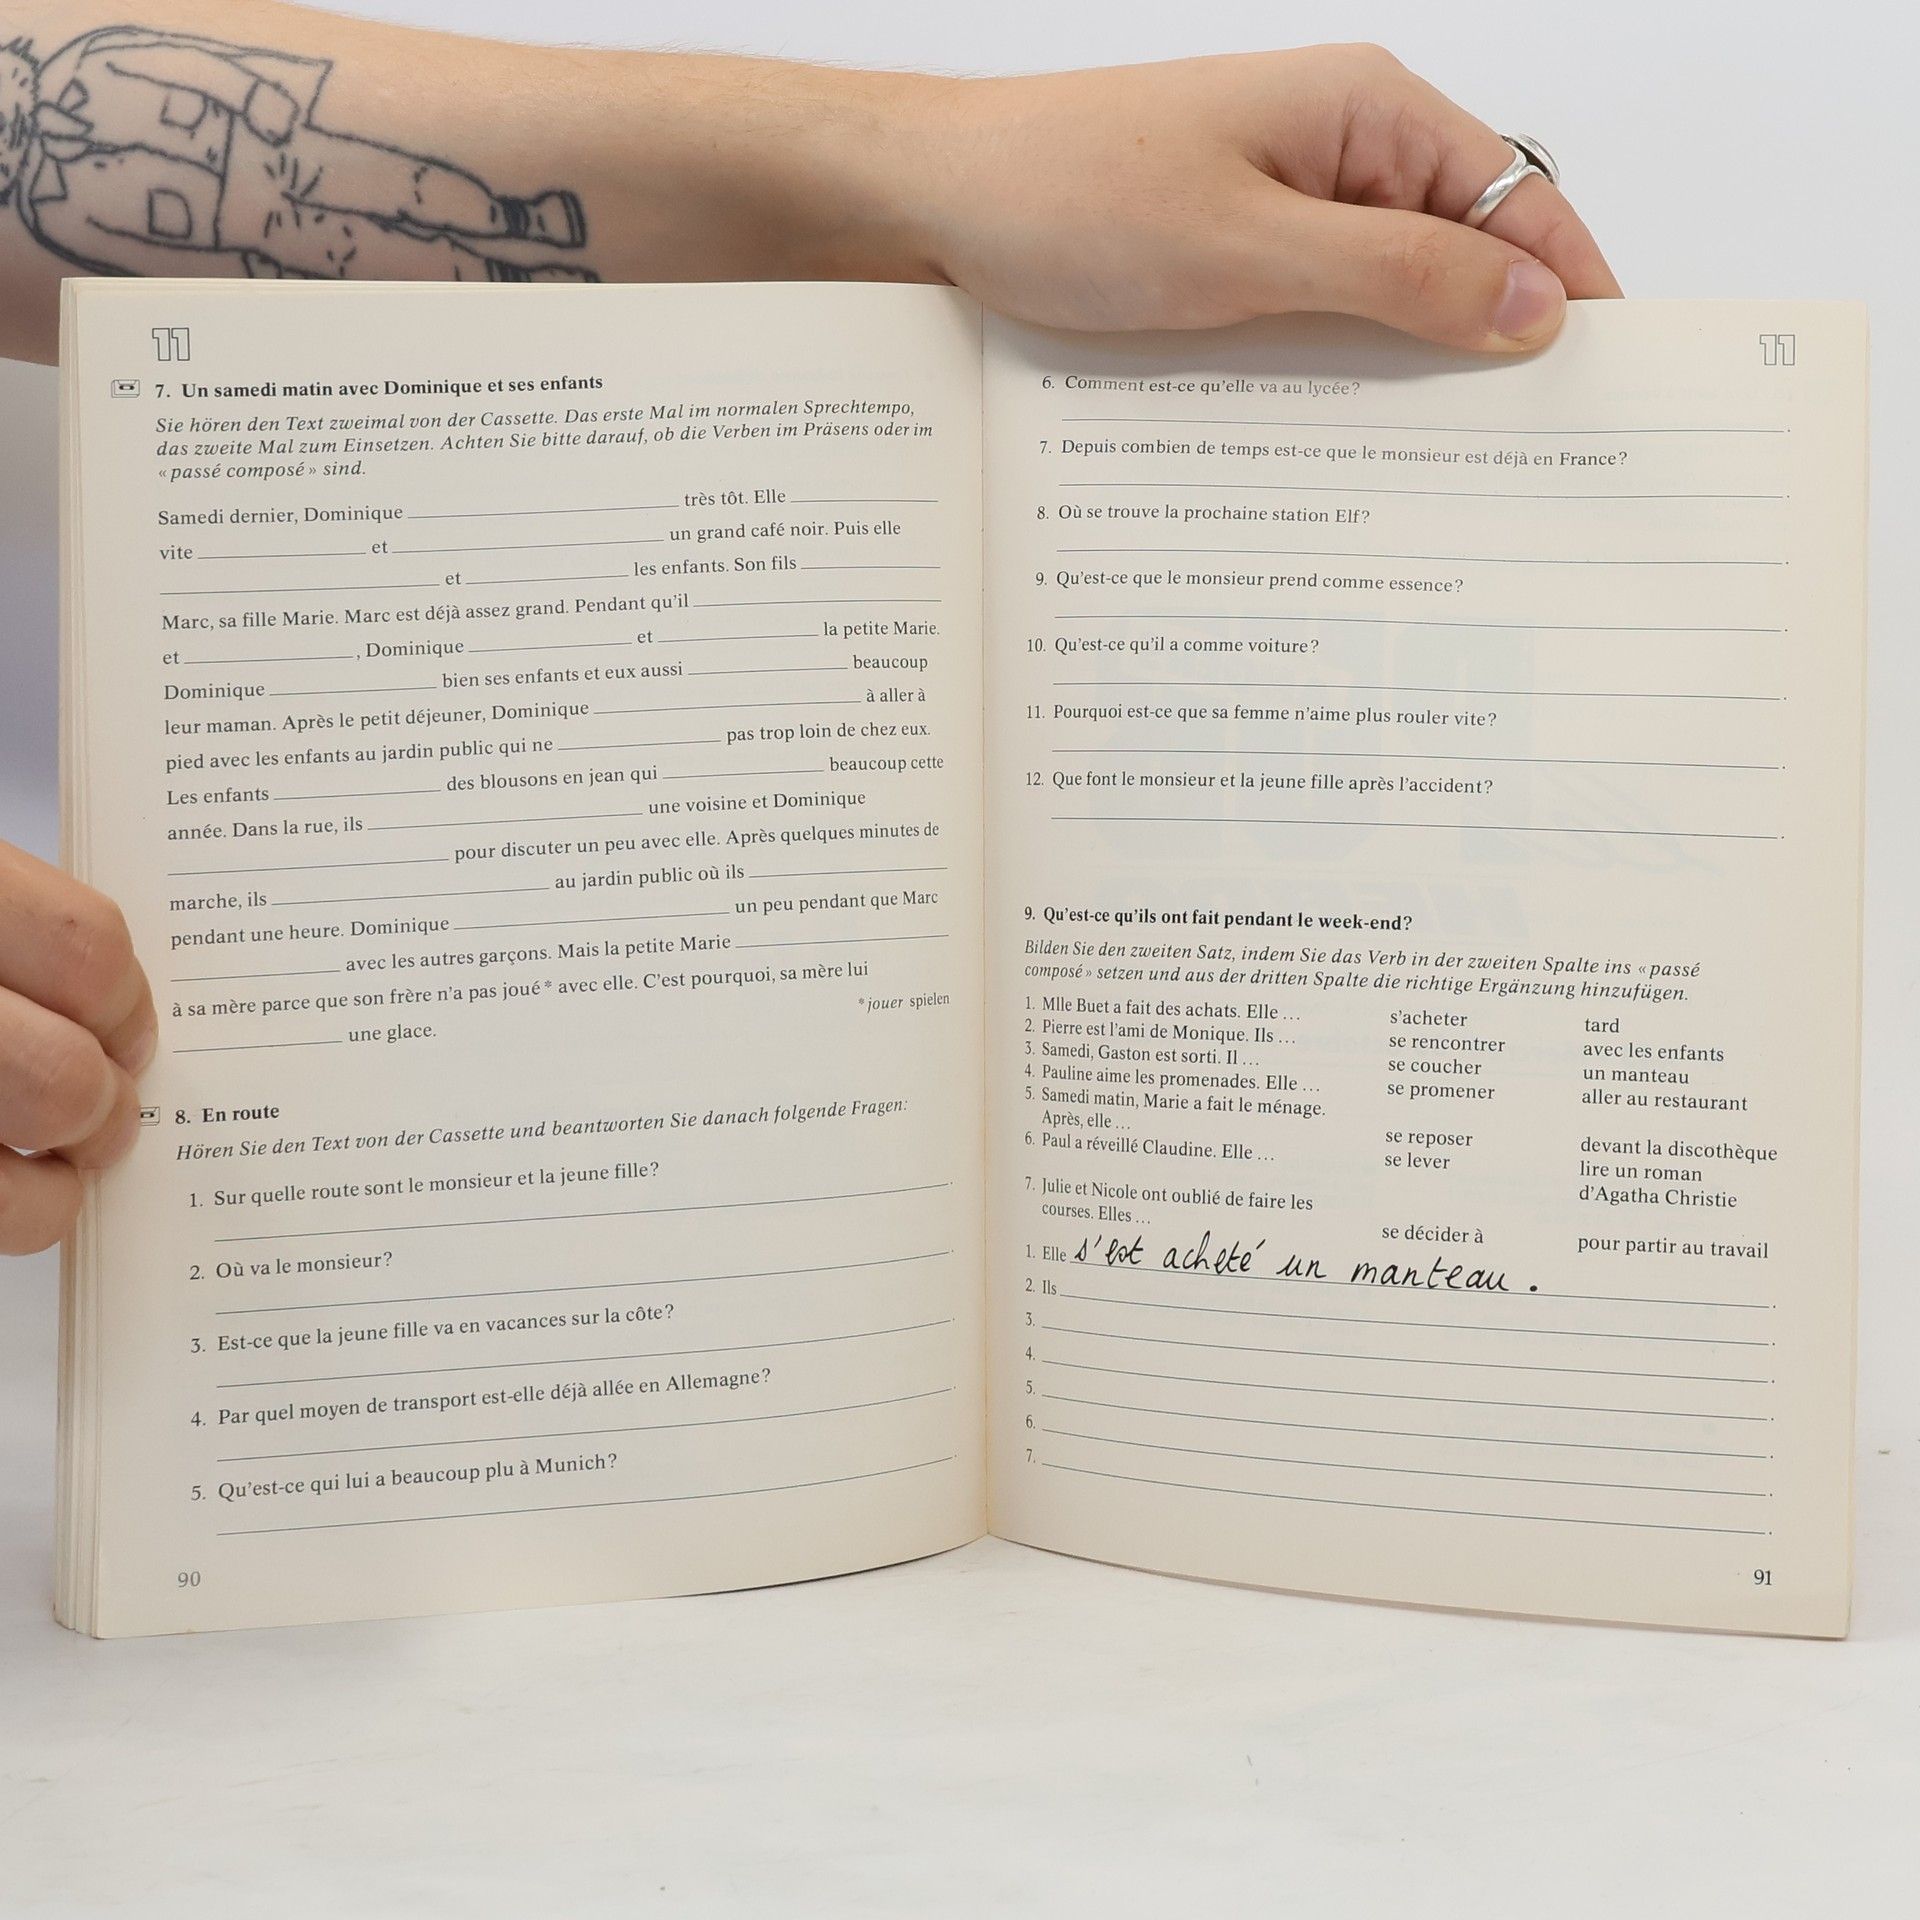 11
7. Un samedi matin avec Dominique et ses enfants
Sie hören den Text zweimal von der Cassette. Das erste Mal im normalen Sprechtempo,
das zweite Mal zum Einsetzen. Achten Sie bitte darauf, ob die Verben im Präsens oder im
« passé composé » sind.
Samedi dernier, Dominique ______ très tôt. Elle ______
vite ______ et ______ un grand café noir. Puis elle
______ et ______ les enfants. Son fils ______
Marc, sa fille Marie. Marc est déjà assez grand. Pendant qu'il ______
et ______, Dominique ______ et ______ la petite Marie.
Dominique ______ bien ses enfants et eux aussi ______ beaucoup
leur maman. Après le petit déjeuner, Dominique ______ à aller à
pied avec les enfants au jardin public qui ne ______ pas trop loin de chez eux.
Les enfants ______ des blousons en jean qui ______ beaucoup cette
année. Dans la rue, ils ______ une voisine et Dominique
______ pour discuter un peu avec elle. Après quelques minutes de
marche, ils ______ au jardin public où ils ______
pendant une heure. Dominique ______ un peu pendant que Marc
______ avec les autres garçons. Mais la petite Marie ______
à sa mère parce que son frère n'a pas joué* avec elle. C'est pourquoi, sa mère lui
______ une glace. *jouer spielen
8. En route
Hören Sie den Text von der Cassette und beantworten Sie danach folgende Fragen:
1. Sur quelle route sont le monsieur et la jeune fille?
2. Où va le monsieur?
3. Est-ce que la jeune fille va en vacances sur la côte?
4. Par quel moyen de transport est-elle déjà allée en Allemagne?
5. Qu'est-ce qui lui a beaucoup plu à Munich?
90
11
6. Comment est-ce qu'elle va au lycée?
7. Depuis combien de temps est-ce que le monsieur est déjà en France?
8. Où se trouve la prochaine station Elf?
9. Qu'est-ce que le monsieur prend comme essence?
10. Qu'est-ce qu'il a comme voiture?
11. Pourquoi est-ce que sa femme n'aime plus rouler vite?
12. Que font le monsieur et la jeune fille après l'accident?
9. Qu'est-ce qu'ils ont fait pendant le week-end?
Bilden Sie den zweiten Satz, indem Sie das Verb in der zweiten Spalte ins « passé
composé » setzen und aus der dritten Spalte die richtige Ergänzung hinzufügen.
1. Mlle Buet a fait des achats. Elle ... s'acheter tard
2. Pierre est l'ami de Monique. Ils ... se rencontrer avec les enfants
3. Samedi, Gaston est sorti. Il ... se coucher un manteau
4. Pauline aime les promenades. Elle ... se promener aller au restaurant
5. Samedi matin, Marie a fait le ménage.
Après, elle ... se reposer devant la discothèque
6. Paul a réveillé Claudine. Elle ... se lever lire un roman
d'Agatha Christie
7. Julie et Nicole ont oublié de faire les
courses. Elles ... se décider à pour partir au travail
1. Elle s'est acheté un manteau.
2. Ils
3.
4.
5.
6.
7.
91